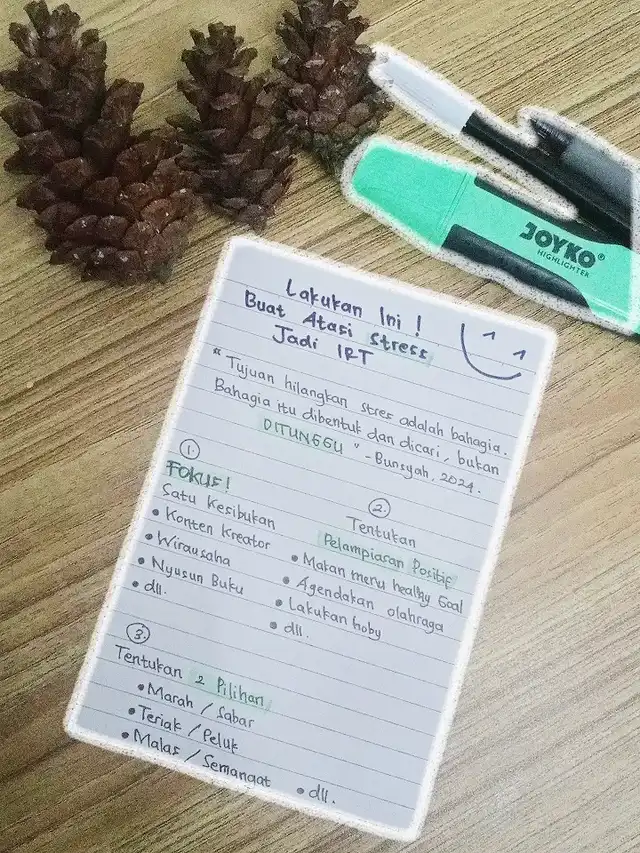 JOYKO®
HIGHLIGHTER
Lakukan Ini !
Buat Atasi Stress
Jadi IRT
"Tujuan hilangkan stres adalah bahagia.
Bahagia itu dibentuk dan dicari, bukan
DITUNGGU" -Bunsyah, 2024.
1.
FOKUS!
Satu Kesibukan
• Konten Kreator
• Wirausaha
• Nyusun Buku
• dll.
2.
Tentukan
Pelampiasan Positif
• Makan menu healhy Goal
• Agendakan olahraga
• Lakukan hoby
• dll.
3.
Tentukan 2 Pilihan
• Marah / Sabar
• Teriak / Peluk
• Malas / Semangat • dll.